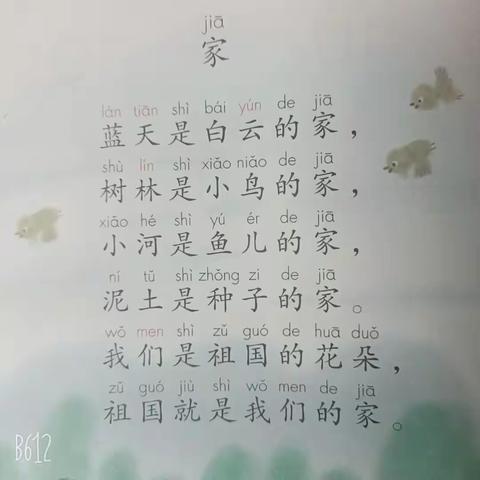 jiā
家
lán tiān shì bái yún de jiā
蓝天是白云的家，
shù lín shì xiǎo niǎo de jiā
树林是小鸟的家，
xiǎo hé shì yú ér de jiā
小河是鱼儿的家，
ní tǔ shì zhǒng zi de jiā
泥土是种子的家。
wǒ men shì zǔ guó de huā duǒ
我们是祖国的花朵，
zǔ guó jiù shì wǒ men de jiā
祖国就是我们的家。
B612